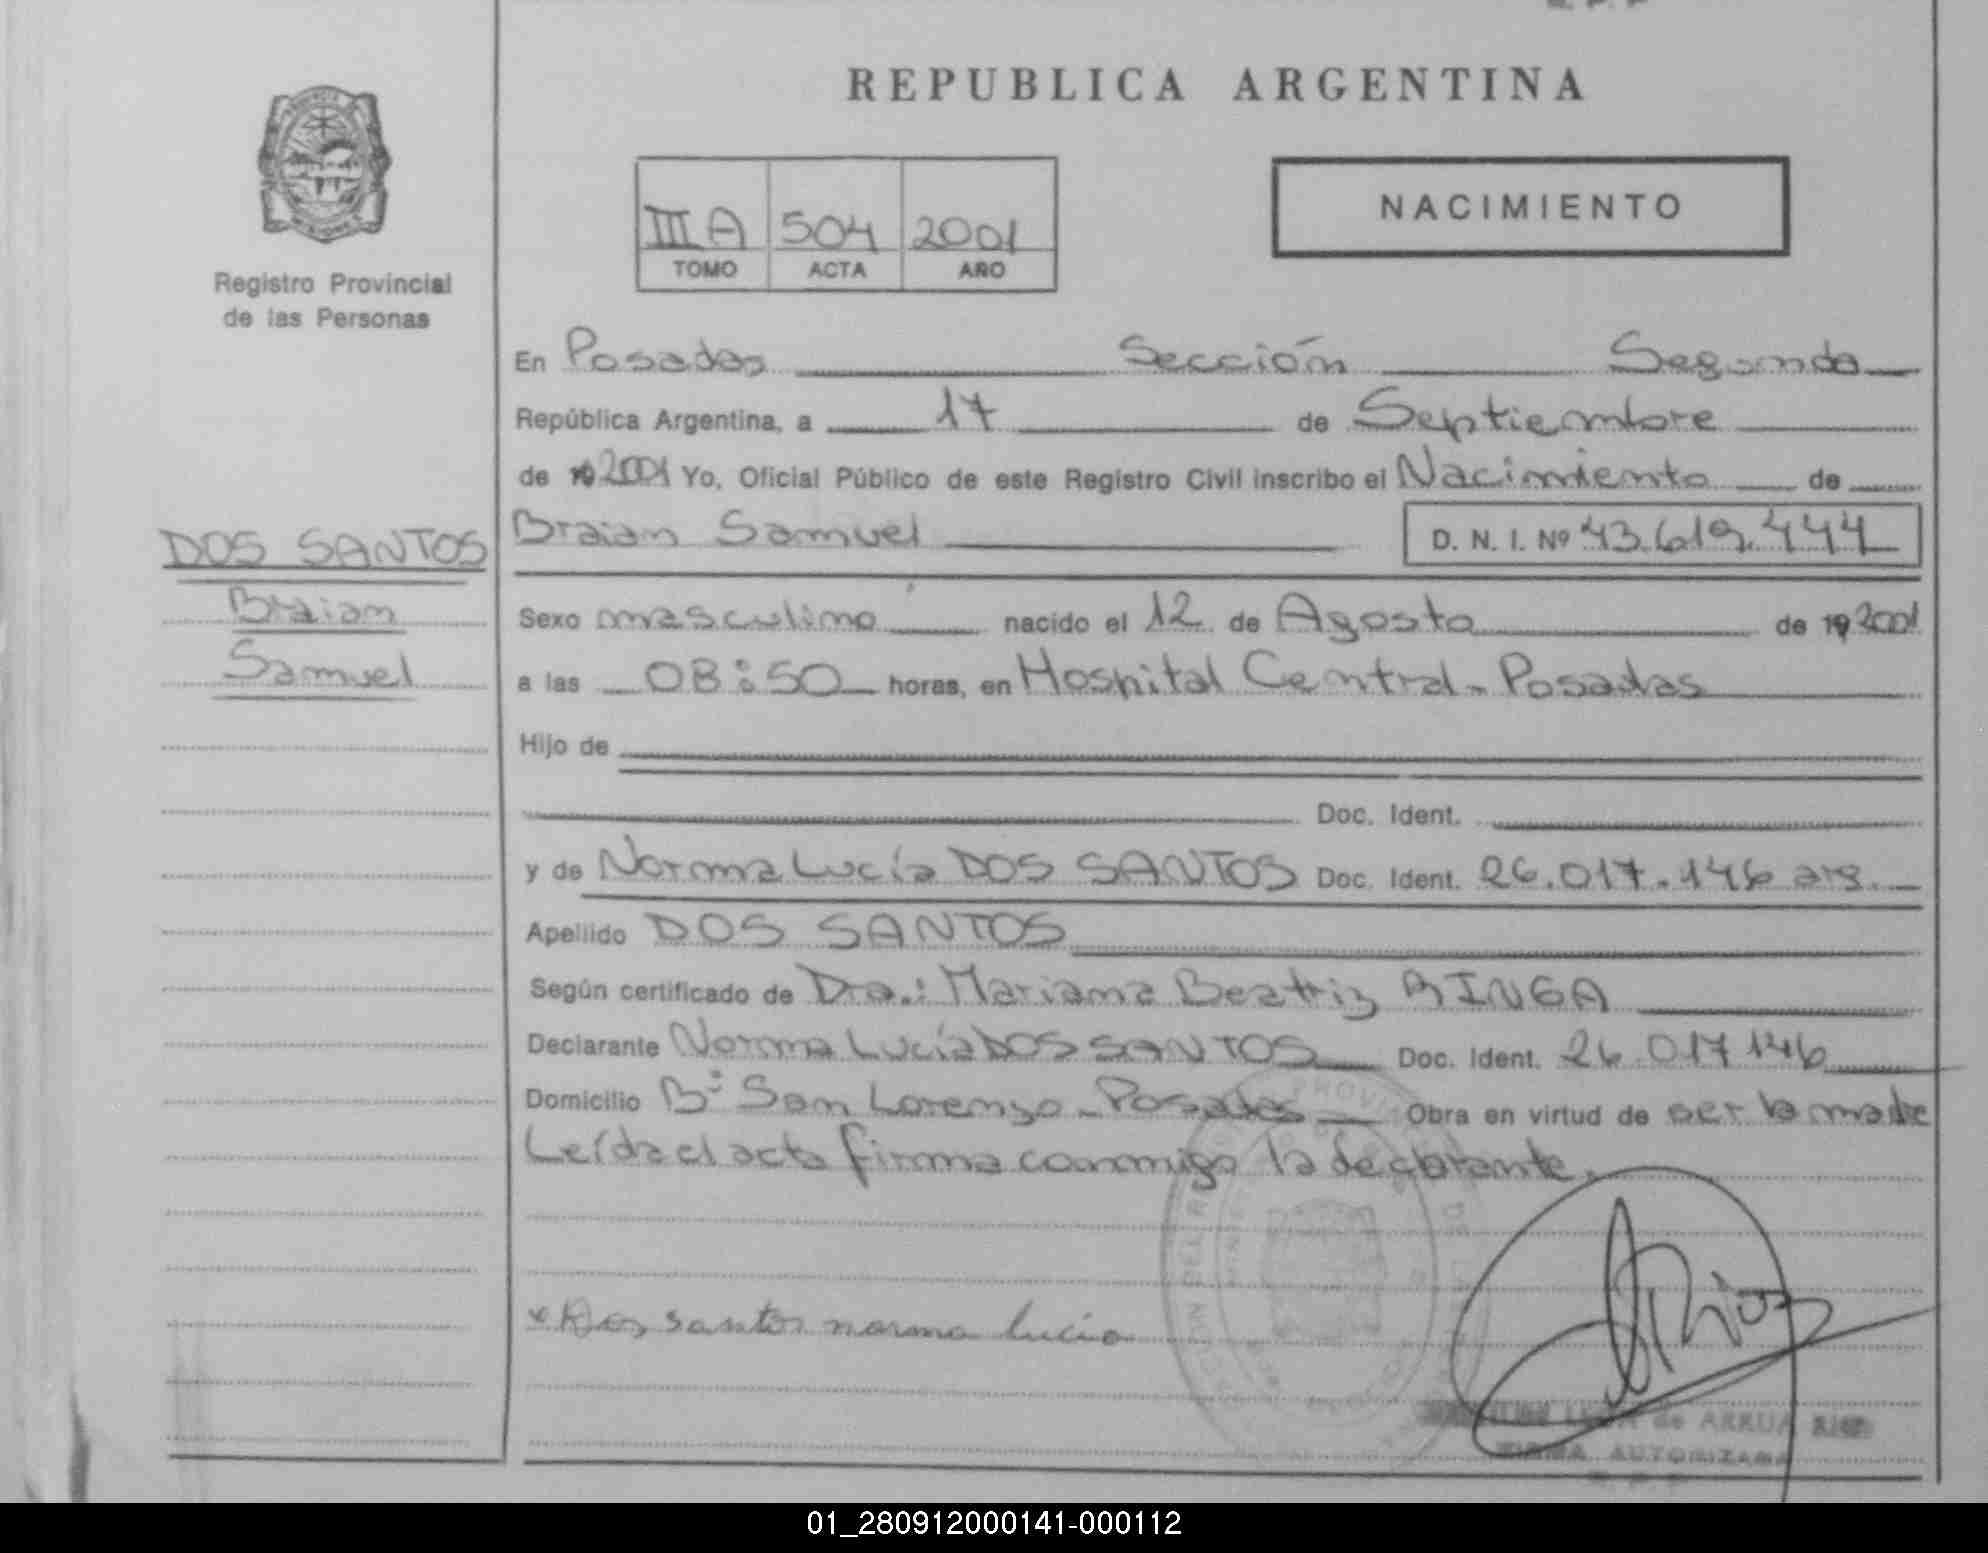 REPUBLICA ARGENTINA
Registro Provincial
de las Personas
III A 504 2001
TOMO ACTA AÑO
NACIMIENTO
En Posadas Sección Segunda
República Argentina, a 17 de Septiembre
de 19 2001 Yo, Oficial Público de este Registro Civil inscribo el Nacimiento de
DOS SANTOS
Braian
Samuel
Braian Samuel D. N. I. Nº 43.619.444
Sexo masculino nacido el 12 de Agosto de 19 2001
a las 08:50 horas, en Hospital Central - Posadas
Hijo de
Doc. Ident.
y de Norma Lucía DOS SANTOS Doc. Ident. 26.017.146 arg.
Apellido DOS SANTOS
Según certificado de Dra.: Mariana Beatriz BINGA
Declarante Norma Lucía DOS SANTOS Doc. Ident. 26.017 146
Domicilio Bº San Lorenzo - Posadas Obra en virtud de ser la madre
Leída el acta firma conmigo la declarante.
Dos santos norma lucia
Rios
de ARRUA
FIRMA AUTORIZADA
R. P. P.
01_280912000141-000112